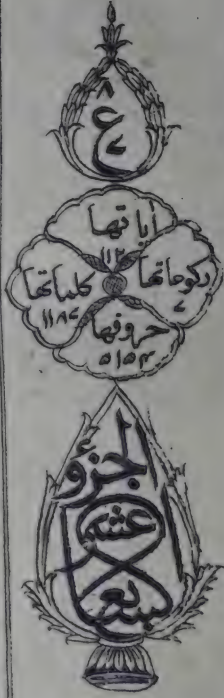 ٨
ع
٧
اياتها
١١٢
ركوعاتها
٧
كلماتها
١١٨٧
حروفها
٥١٥۴
الجزؤ
السابع
عشر